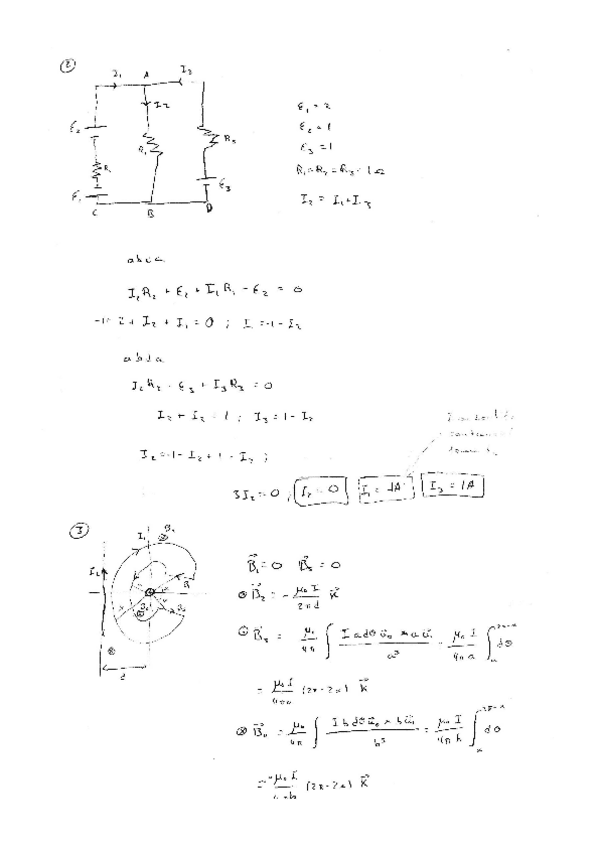 ②
I₁ A I₂
I₂
E₂
R₁ R₃
R₁
E₁ E₃
C B D
E₁ = 2
E₂ = 1
E₃ = 1
R₁ = R₂ = R₃ = 1Ω
I₂ = I₁ + I₃
abca
I₂R₂ + E₂ + I₁R₁ - E₂ = 0
-1+2+I₂+I₁=0 ; I=-1-I₂
abda
I₂R₂ - E₃ + I₃R₃ = 0
I₂ + I₂ = 1 ; I₃ = 1 - I₂
I₂=-1-I₂+1-I₂ ;
3I₂=0, I₂=0 I₁=-1A I₃=1A
③
I₁
I₂
d
B⃗₁=0 B⃗₃=0
⊗ B⃗₂ = - μ₀ I / 2πd K⃗
⊙ B⃗₅ = μ₀/4π ∫ I a dθ u⃗₀ × a u⃗₁ / a³ = μ₀ I / 4π a ∫ dθ
= μ₀ I / 4πa (2π-2α) K⃗
⊗ B⃗₆ = μ₀/4π ∫ I b dθ u⃗₀ × b u⃗₁ / b³ = μ₀ I / 4π b ∫ dθ
= -μ₀ I / 4πb (2π-2α) K⃗